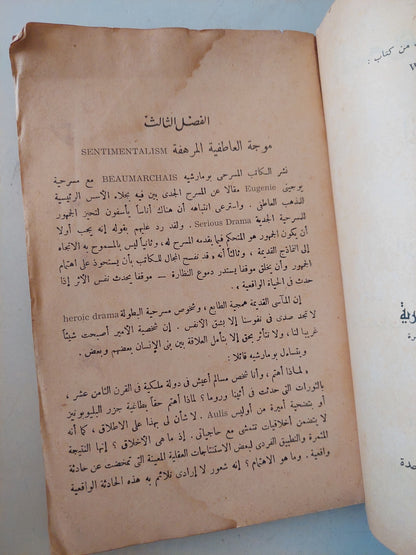 الفصل الثالث
موجة العاطفية المرهفة SENTIMENTALISM
نشر الكاتب المسرحي بومارشيه BEAUMARCHAIS مع مسرحية
يوجيني Eugenie مقالا عن المسرح الجدى بين فيه بجلاء الأسس الرئيسية
للمذهب العاطفي . واسترعى انتباهه أن هناك أناساً يأسفون لتحيز الجمهور
للمسرحية الجدية Serious Drama . ولقد رد عليهم بقوله إنه يجب أولا
أن يكون الجمهور هو المتحكم فيما يقدمه المسرح له ، وثانياً ليس بالمسموح به الاتجاه
إلى النماذج القديمة ، وثالثاً أنه قد نفسح المجال للكاتب بأن يستحوذ على اهتمام
الجمهور وأن يخلق موقفا يستدر دموع النظارة – موقفا يحدث نفس الأثر إذا
حدث في الحياة الواقعية .
إن المآسى القديمة همجية الطابع ، وشخوص مسرحية البطولة heroic drama
لا تجد صدى فى نفوسنا إلا بشق الانفس . إن شخصية الأمير أصبحت شيئاً
غريبا لنا ، ولا نتأثر بحق إلا بتأمل العلاقة بين بنى الإنسان بعضهم وبعض .
ويتساءل بومارشيه قائلا :
« لماذا أهتم ، وأنا شخص مسالم أعيش فى دولة ملكية فى القرن الثامن عشر ،
بالثورات التى حدثت فى أثينا وروما ؟ لماذا أهتم حقاً بطاغية جزر البليوبونيز
أو بتضحية أميرة من أوليس Aulis . لا شأن لى بهذا على الاطلاق ، كما أنه
لا يتضمن أخلاقيات تتمشى مع حاجياتى . إذ ما هى الاخلاق ؟ إنها النتيجة
المثمرة والتطبيق الفردى لبعض الاستنتاجات العقلية المعينة التى تمخضت عن حادثة
واقعية . وما هو الاهتمام ؟ إنه شعور لا إرادى نلائم به هذه الحادثة الواقعية
من كتاب :